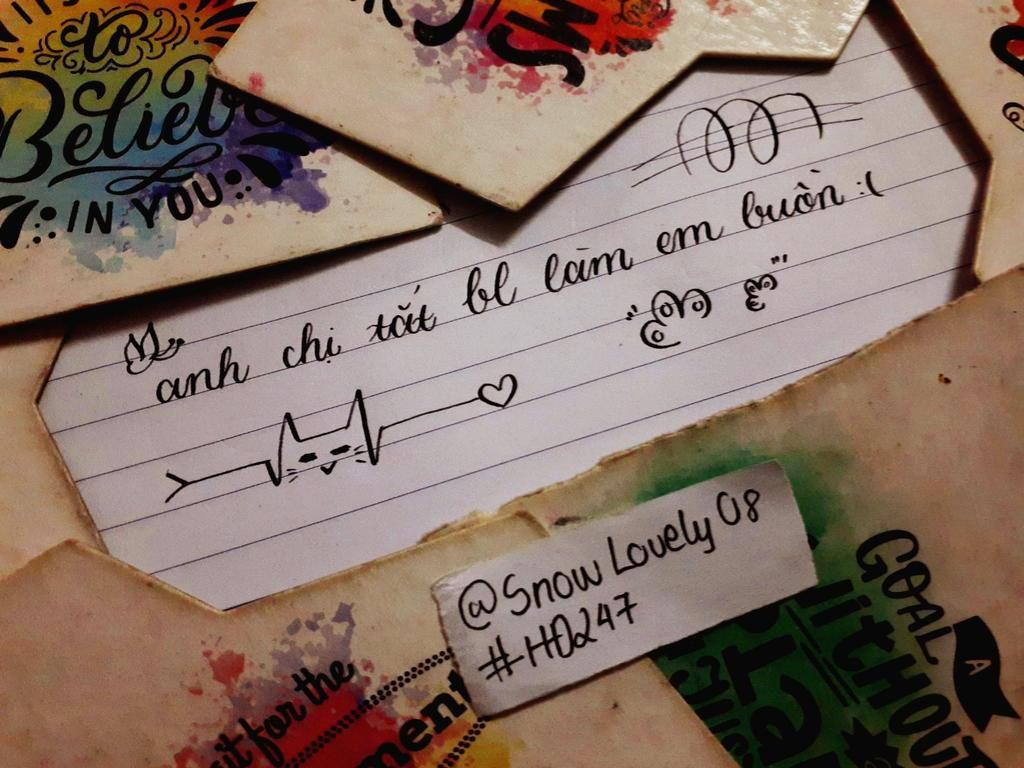 to
Believe
IN YOU
anh chị tắt bl làm em buồn :(
@Snow Lovely 08
#HD247
it for the
ment
GOAL
A